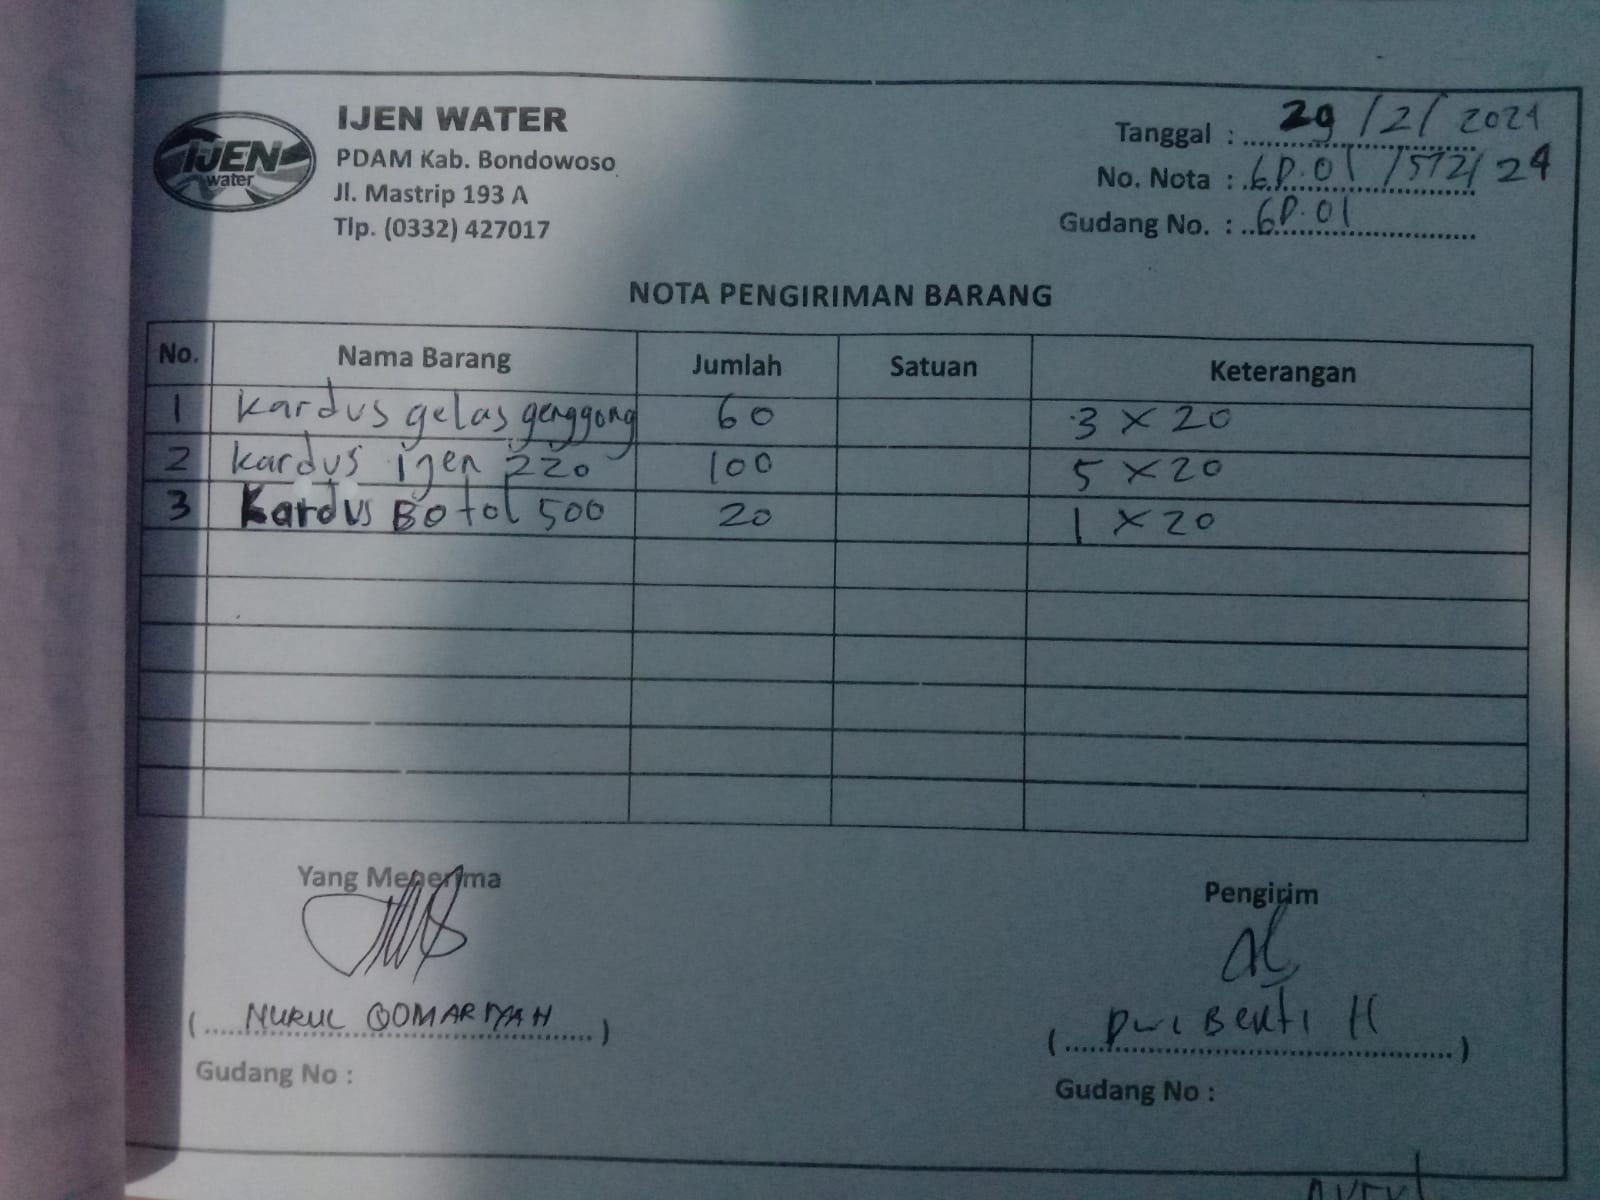 IJEN
water
IJEN WATER
PDAM Kab. Bondowoso
Jl. Mastrip 193 A
Tlp. (0332) 427017
Tanggal : 29/2/2024
No. Nota : GD.01/572/24
Gudang No. : GD.01
NOTA PENGIRIMAN BARANG
No. Nama Barang Jumlah Satuan Keterangan
1 Kardus gelas genggong 60 3 x 20
2 Kardus ijen 220 100 5 x 20
3 Kardus Botol 500 20 1 x 20
Yang Menerima
Pengirim
(NURUL QOMARIYAH)
(Dwi Bekti H)
Gudang No :
Gudang No :